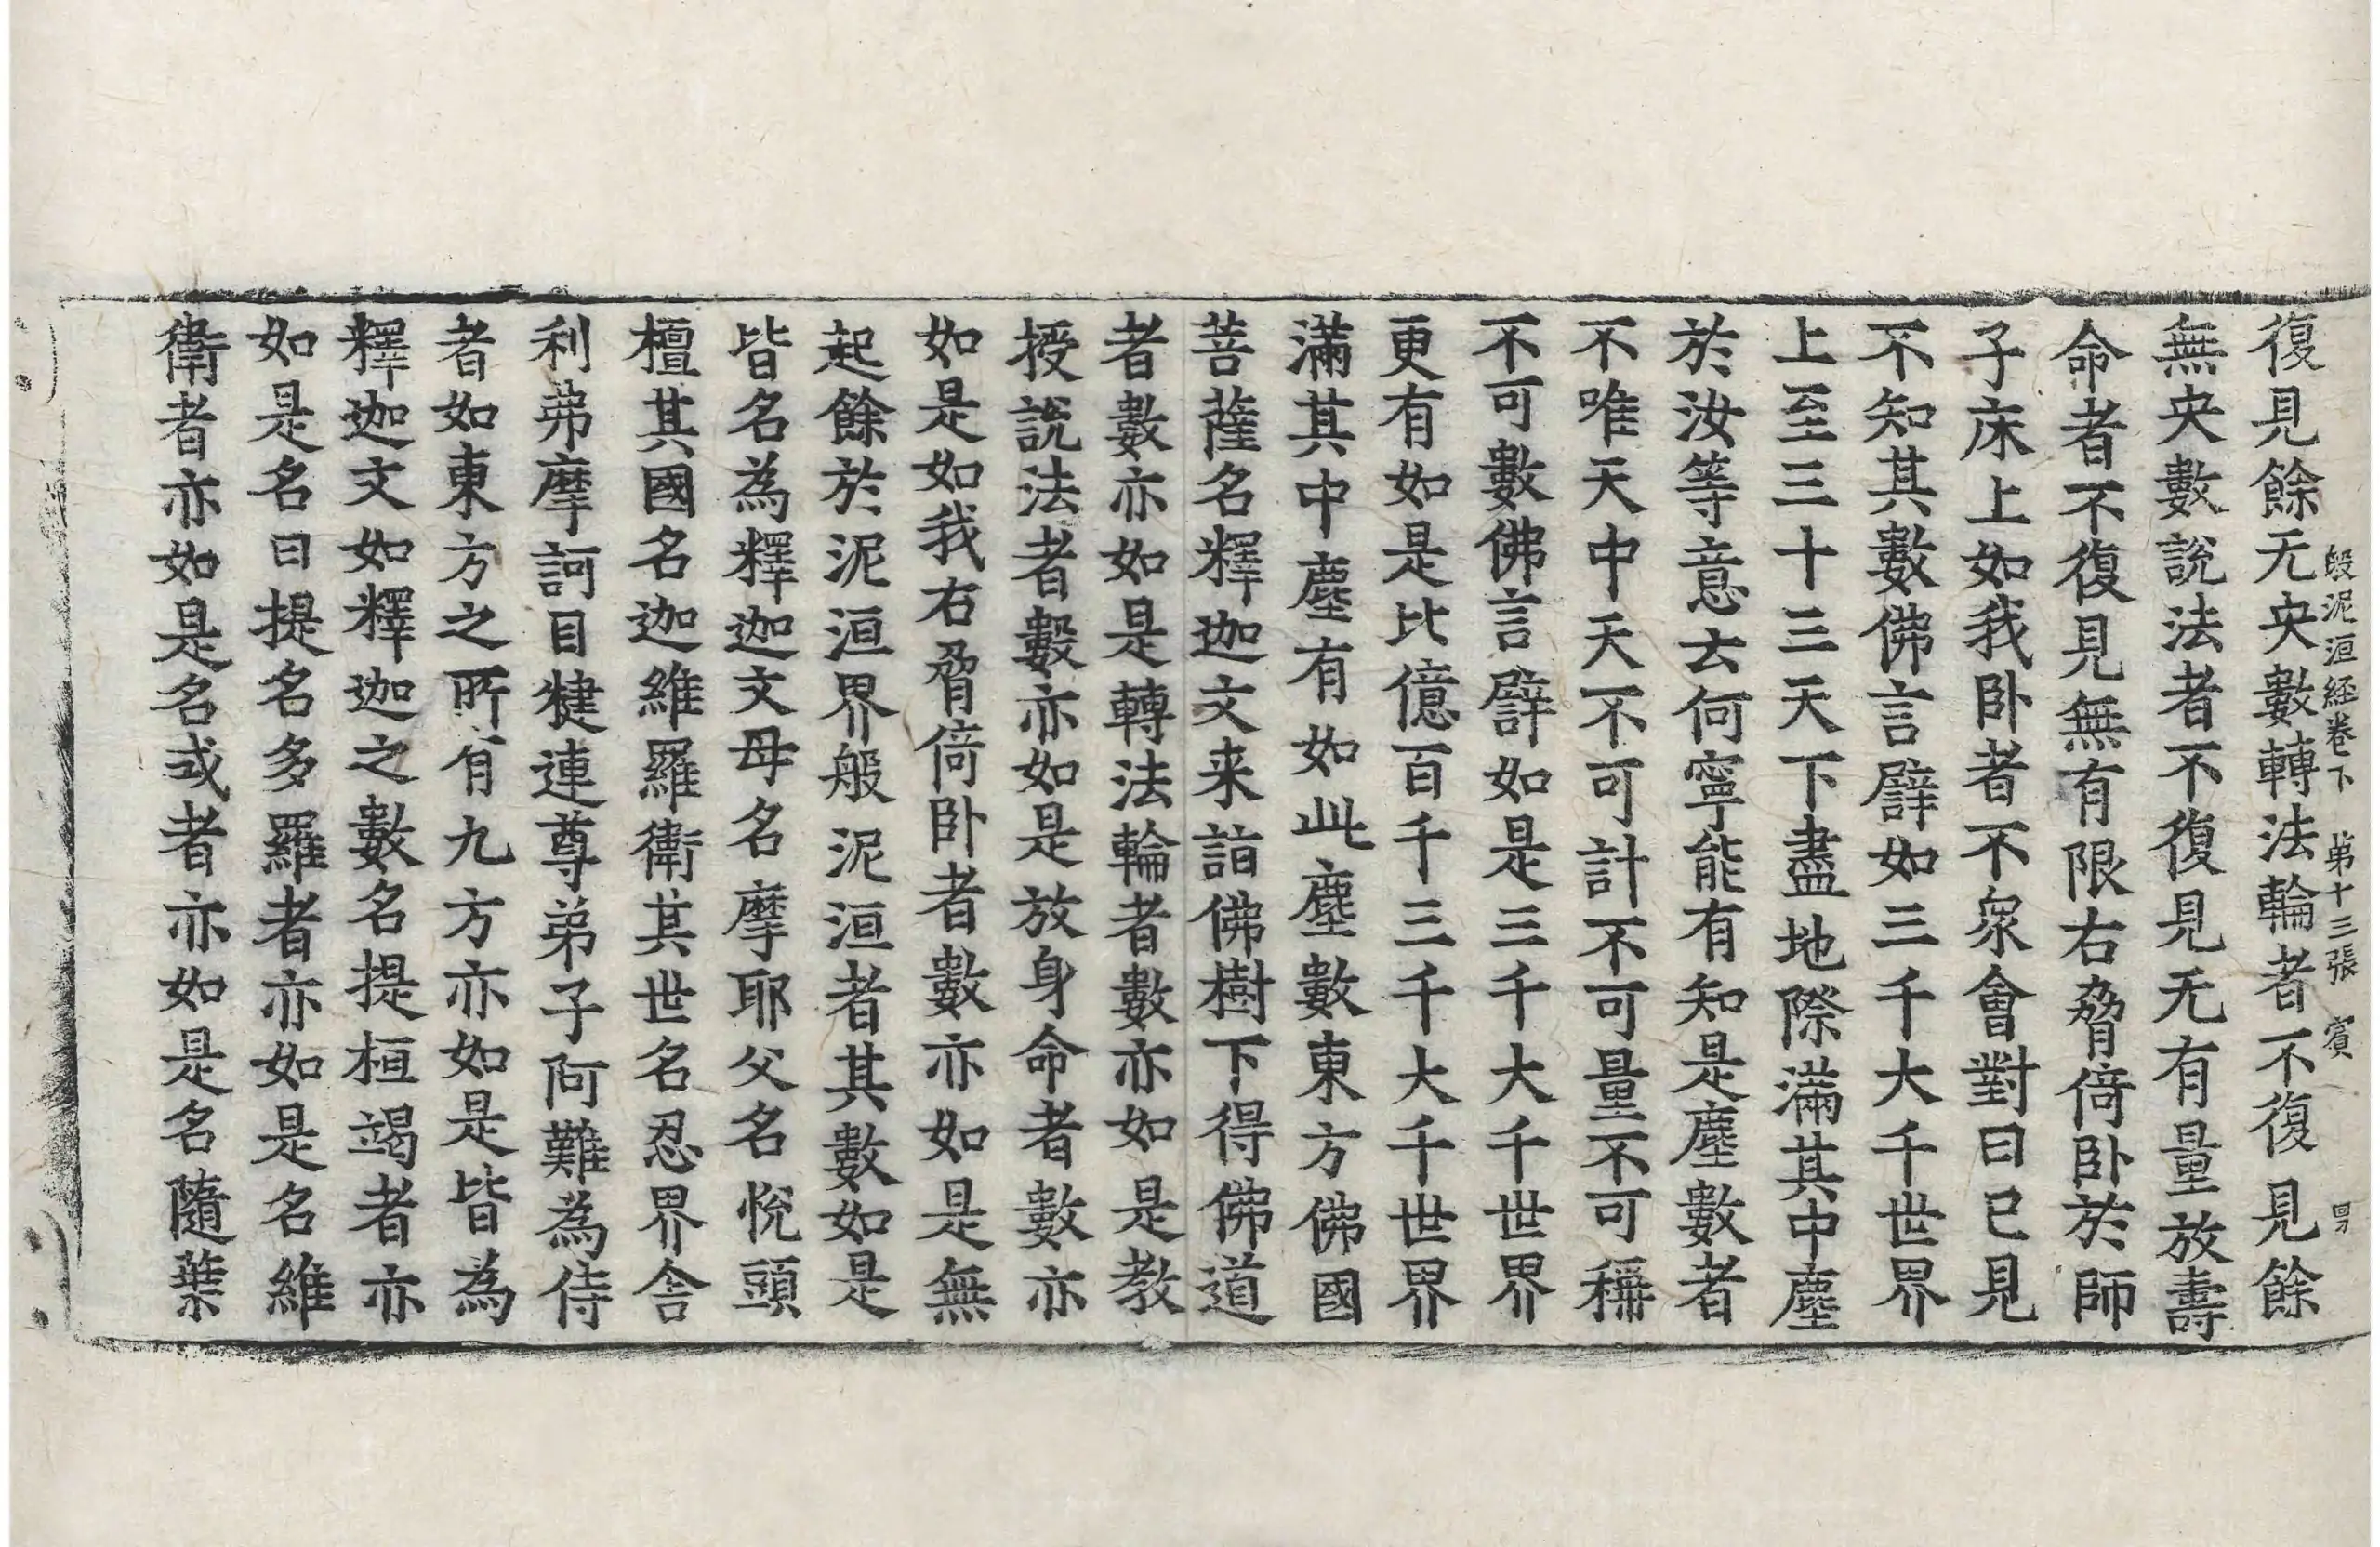 般泥洹経卷下 第十三張 賓
復見餘无央數轉法輪者不復見餘
無央數說法者不復見无有量放壽
命者不復見無有限右脅倚卧於師
子床上如我卧者不衆會對曰已見
不知其數佛言譬如三千大千世界
上至三十三天下盡地際滿其中塵
於汝等意云何寧能有知是塵數者
不唯天中天不可計不可量不可稱
不可數佛言譬如是三千大千世界
更有如是比億百千三千大千世界
滿其中塵有如此塵數東方佛國
菩薩名釋迦文来詣佛樹下得佛道
者數亦如是轉法輪者數亦如是教
授說法者數亦如是放身命者數亦
如是如我右脅倚卧者數亦如是無
起餘於泥洹界般泥洹者其數如是
皆名為釋迦文母名摩耶父名悅頭
檀其國名迦維羅衛其世名忍界舍
利弗摩訶目揵連尊弟子阿難為侍
者如東方之所有九方亦如是皆為
釋迦文如釋迦之數名提桓竭者亦
如是名曰提名多羅者亦如是名維
衛者亦如是名式者亦如是名隨葉